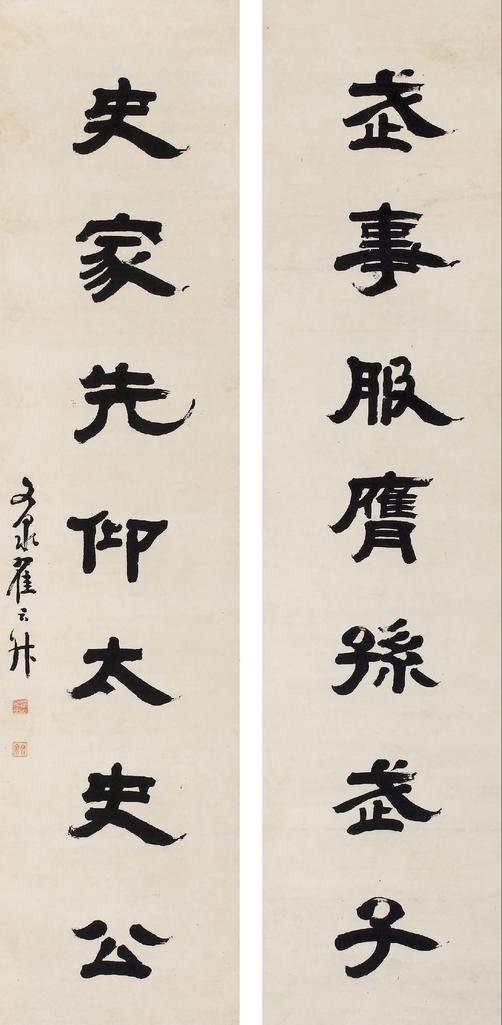 武事服膺孫武子
史家先仰太史公
文泉翟云升